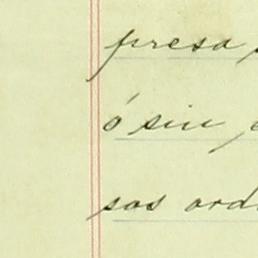 presa
ó sin
sos ord